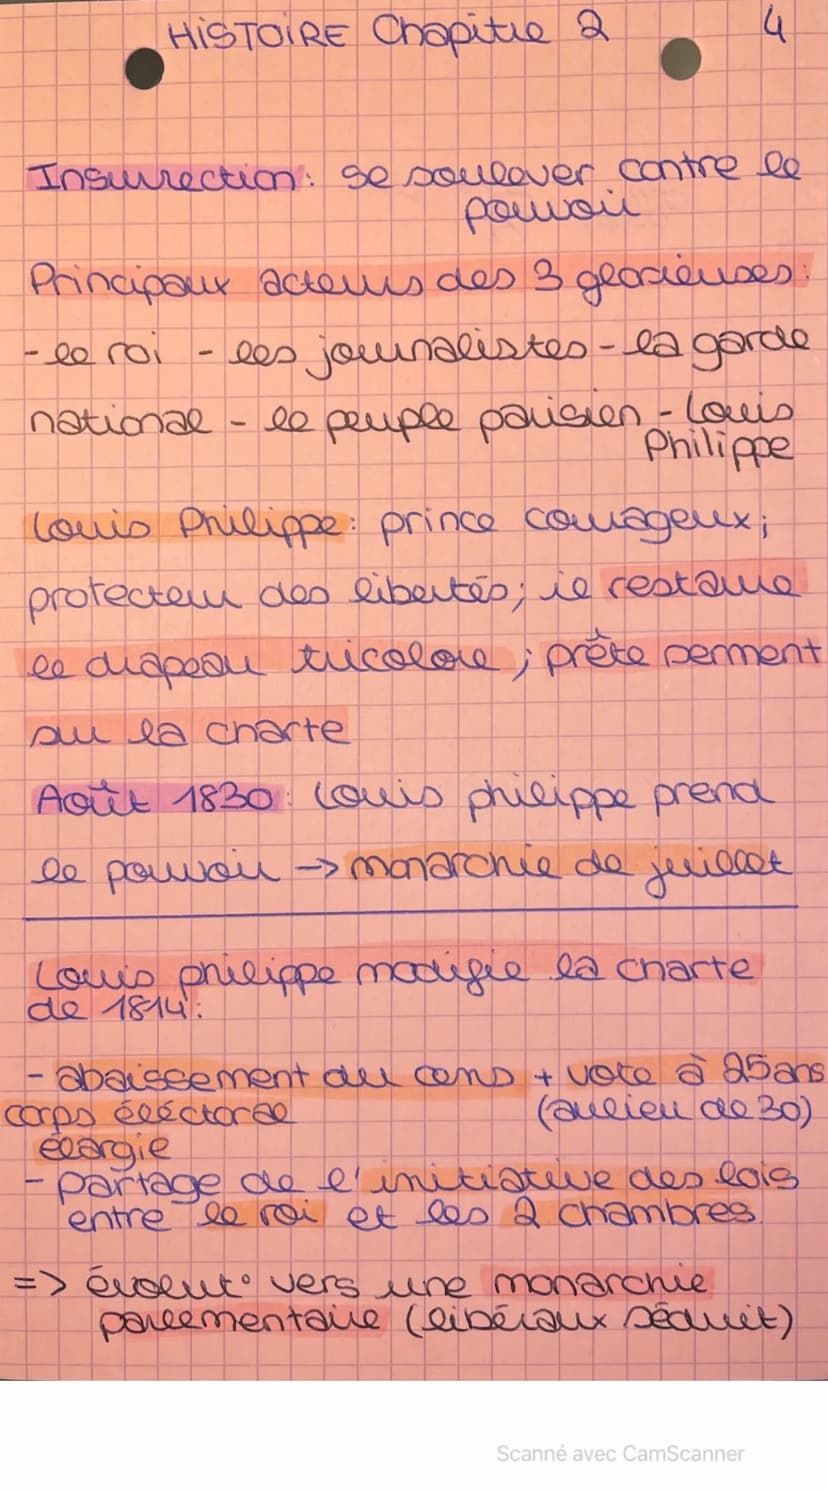 HiSTOiRE Chapitre 2 4
Insurrection : se soulever contre le
pouvoir
Principaux acteurs des 3 glorieuses :
- le roi - les journalistes - la garde
national - le peuple parisien - Louis
Philippe
Louis Philippe : prince courageux ;
protecteur des libertés ; il restaure
le drapeau tricolore ; prête serment
sur la charte
Août 1830 : Louis philippe prend
le pouvoir -> monarchie de juillet
Louis philippe modifie la charte
de 1814 :
- abaissement du cens + vote à 25 ans
corps éléctoral (au lieu de 30)
élargie
- partage de l'initiative des lois
entre le roi et les 2 chambres
=> évolut° vers une monarchie
parlementaire (libéraux séduit)
Scanné avec CamScanner